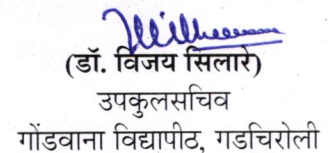 (डॉ. विजय सिलारे)
उपकुलसचिव
गोंडवाना विद्यापीठ, गडचिरोली